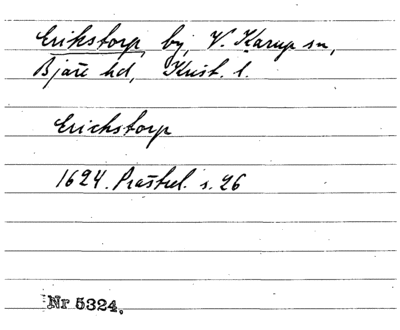 Erikstorp by, V. Karup sn,
Bjäre hd, Krist. l.
Erichstorp
1624. Prästrel. s. 26
Nr 5324.